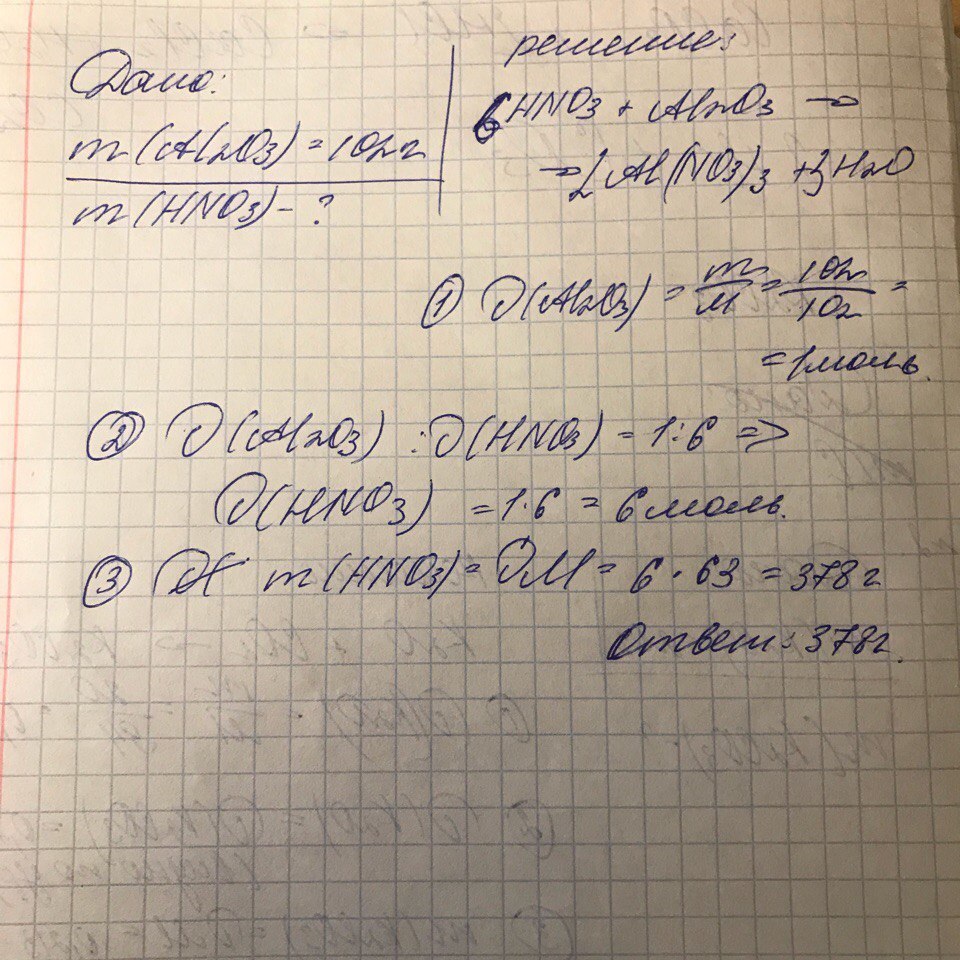 Дано:
m(Al2O3) = 102г
m(HNO3) - ?
решение:
6HNO3 + Al2O3 →
→ 2Al(NO3)3 + 3H2O
① ϑ(Al2O3) = m/M = 102/102 =
= 1моль.
② ϑ(Al2O3) : ϑ(HNO3) = 1:6 =>
ϑ(HNO3) = 1·6 = 6 моль.
③ m(HNO3) = ϑM = 6·63 = 378г
Ответ: 378г.